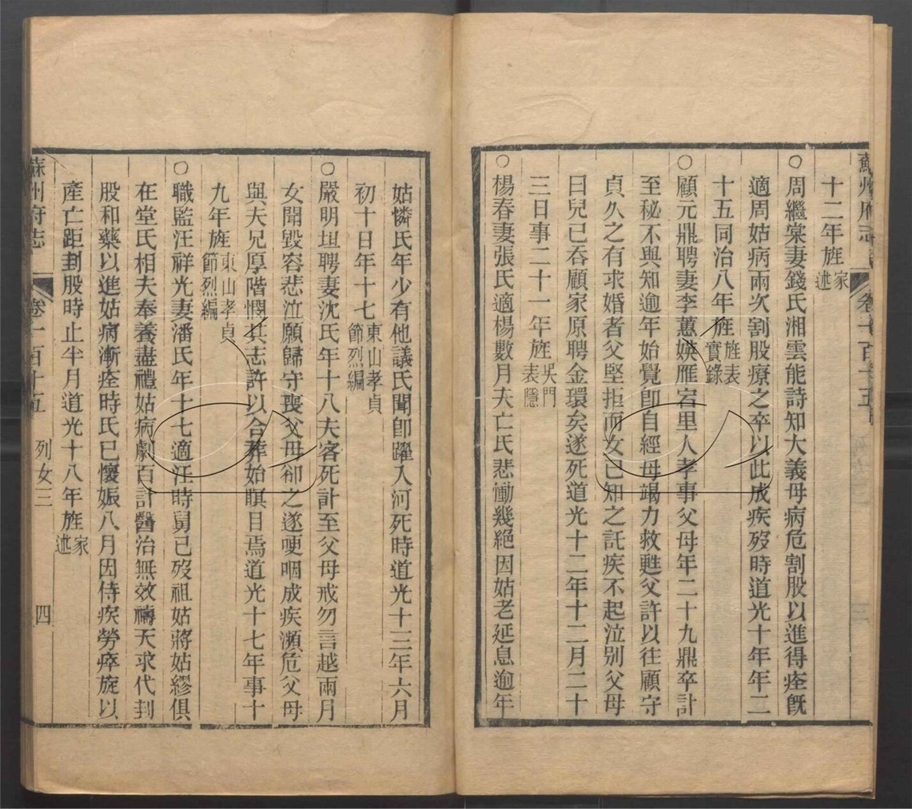 十二年旌家述
○周繼棠妻錢氏湘雲能詩知大義母病危割股以進得痊旣
適周姑病兩次割股療之卒以此成疾歿時道光十年年二
十五同治八年旌旌表實錄
○顧元鼎聘妻李蕙媖雁宕里人孝事父母年二十九鼎卒訃
至秘不與知逾年始覺卽自經母竭力救甦父許以往顧守
貞久之有求婚者父堅拒而女已知之託疾不起泣別父母
曰兒已吞顧家原聘金環矣遂死道光十二年十二月二十
三日事二十一年旌吳門表隱
○楊春妻張氏適楊數月夫亡氏悲慟幾絕因姑老延息逾年
姑憐氏年少有他議氏聞卽躍入河死時道光十三年六月
初十日年十七東山孝貞節烈編
○嚴明坦聘妻沈氏年十八夫客死訃至父母戒勿言越兩月
女聞毀容悲泣願歸守喪父母卻之遂哽咽成疾瀕危父母
與夫兄厚階憫其志許以合葬始瞑目焉道光十七年事十
九年旌東山孝貞節烈編
○職監汪祥光妻潘氏年十七適汪時舅已歿祖姑蔣姑繆俱
在堂氏相夫奉養盡禮姑病劇百計醫治無效禱天求代刲
股和藥以進姑病漸痊時氏已懷娠八月因侍疾勞瘁旋以
產亡距刲股時止半月道光十八年旌家述
蘇州府志
卷一百十五
列女三
四